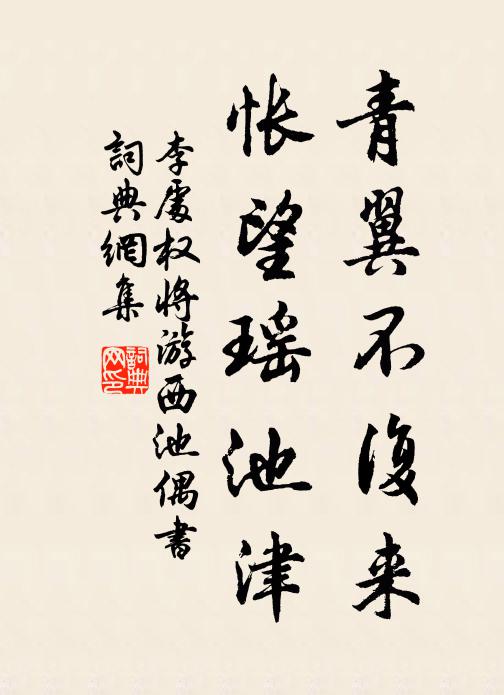 青翼不復来
悵望瑶池津
李處权将游西池偶書
詞典網集
詞典
网印